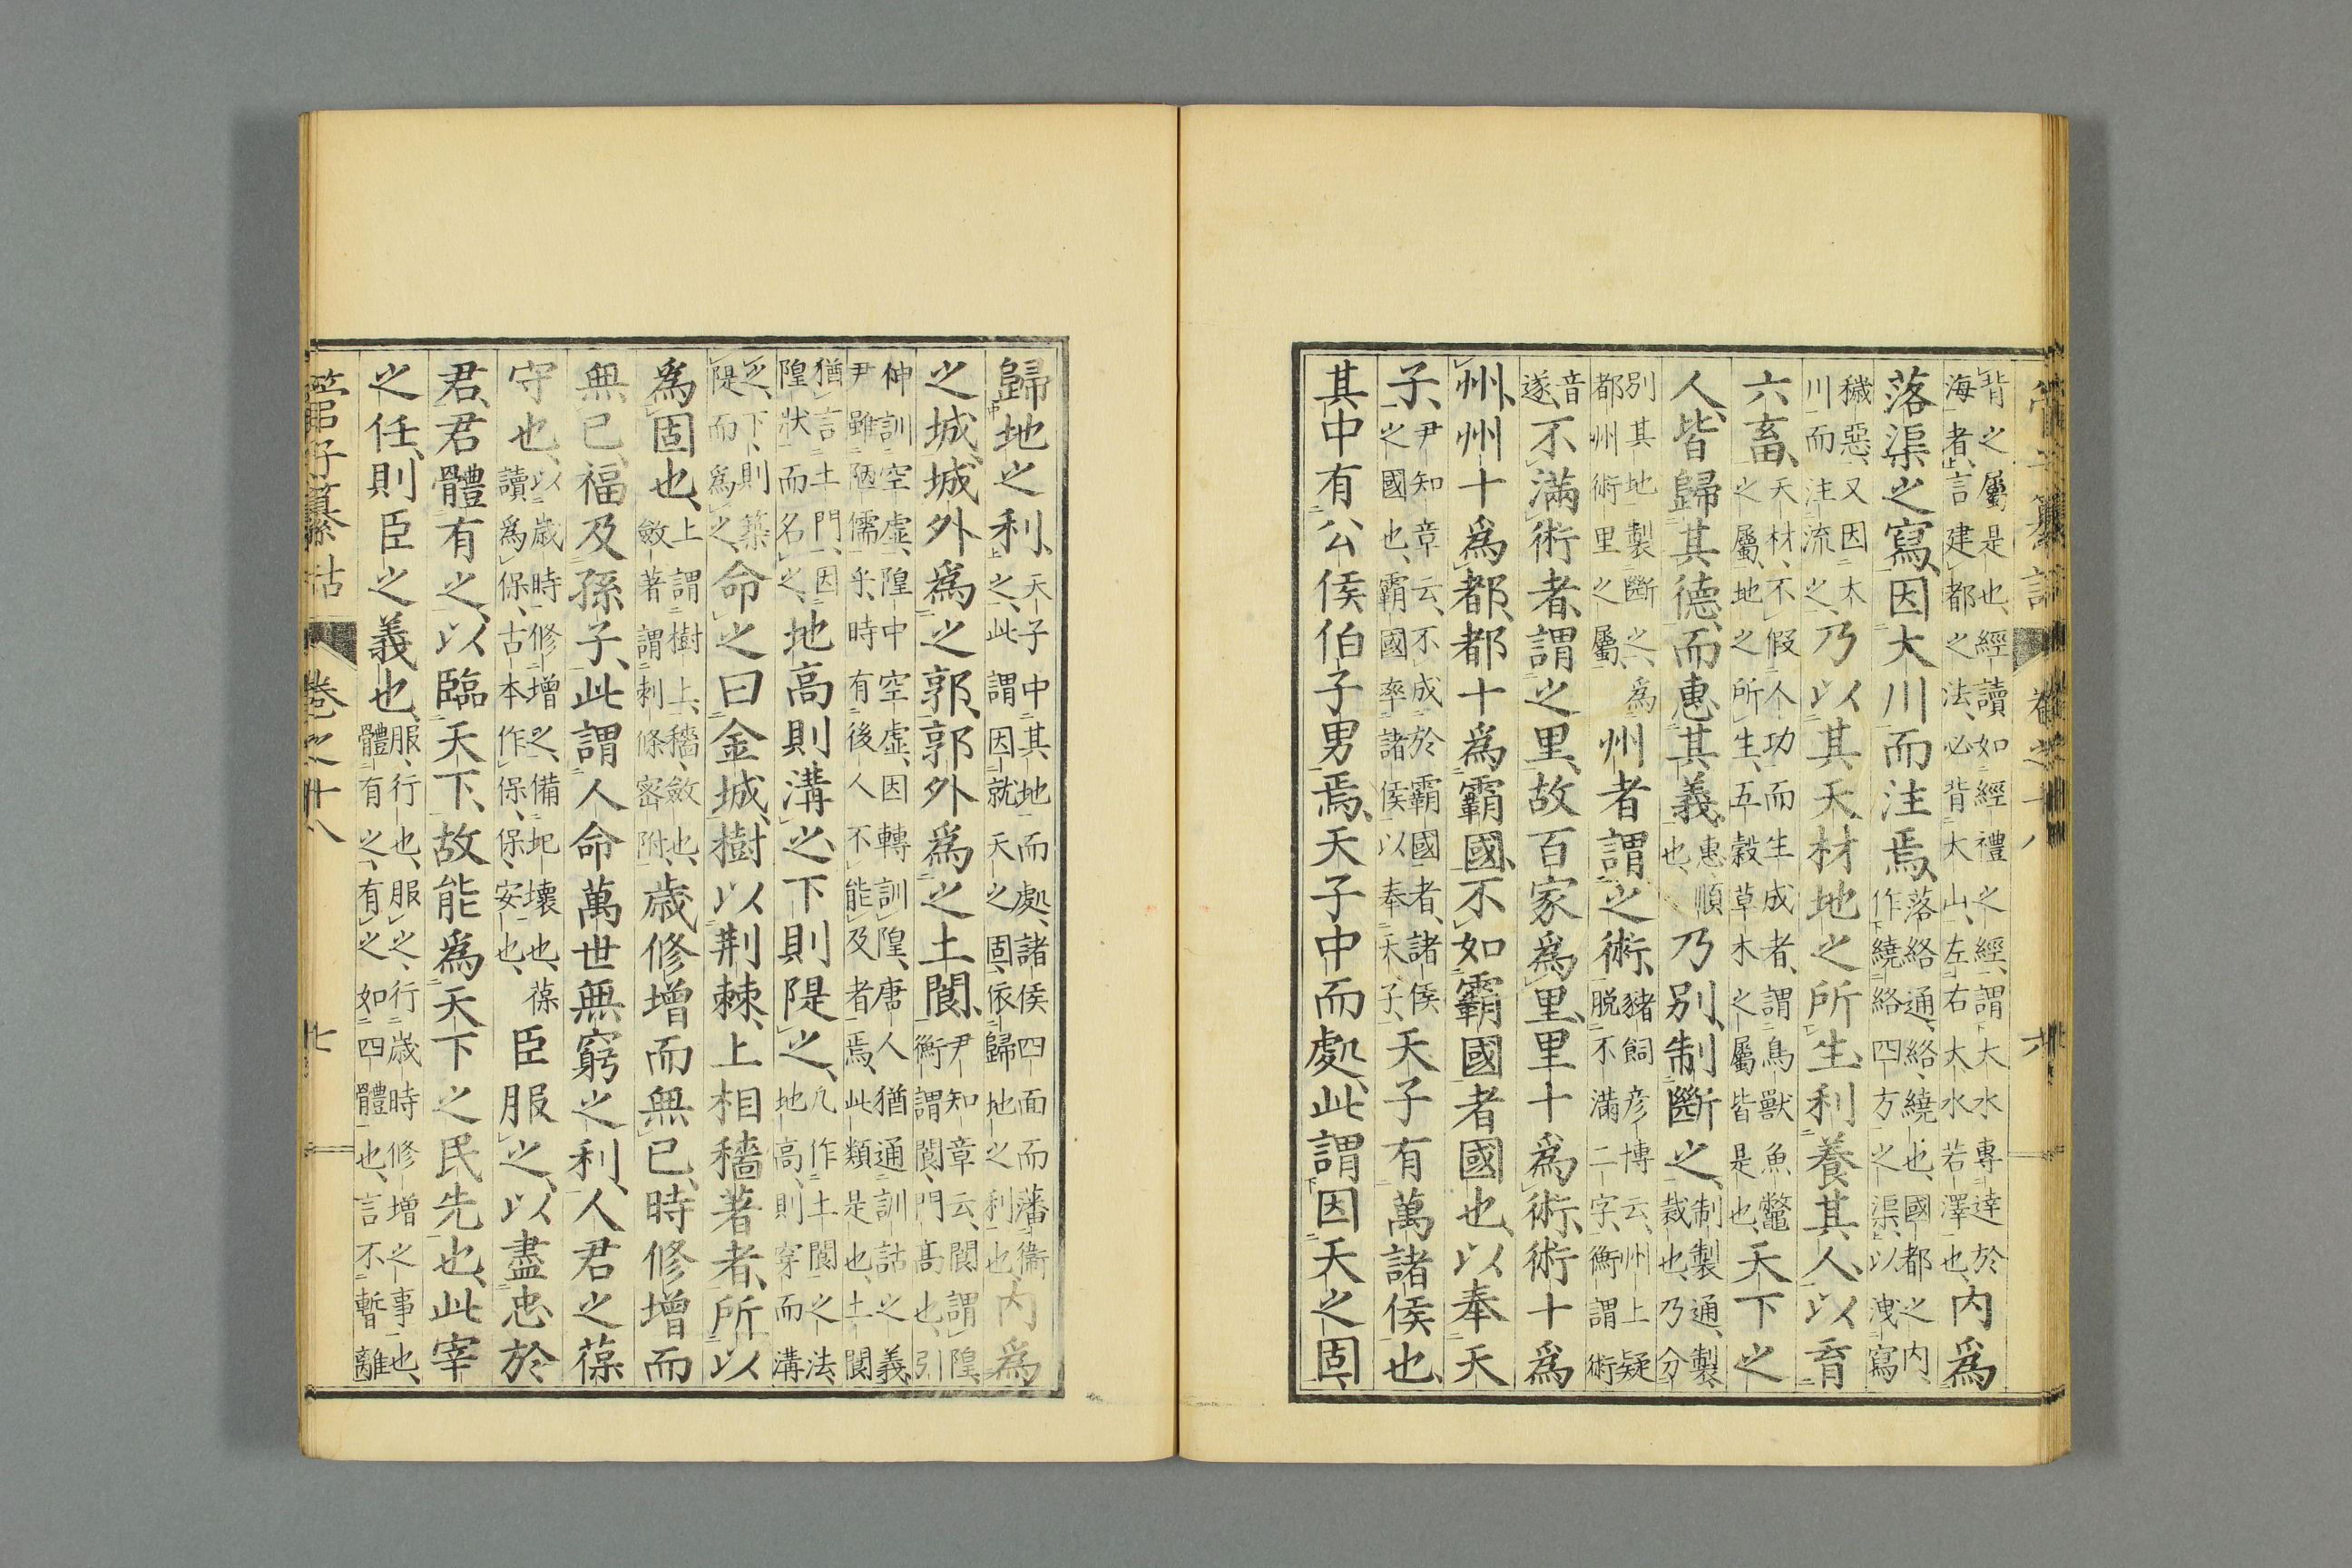 管子纂詁 卷之十八 六
背之屬是也、經讀如經禮之經、謂大水專達於
海者、言建都之法、必背大山、左右大水若澤也、內爲
落渠之寫、因大川而注焉、落絡通、絡、繞也、國都之內、
作繞絡四方之渠、以洩寫
穢惡、又因大
川而注流之、乃以其天材地之所生、利養其人、以育
六畜、天材、不假人功而生成者、謂鳥獸魚鼈
之屬、地之所生、五穀草木之屬皆是也、天下之
人、皆歸其德、而惠其義、惠、順
也、乃別制斷之、制製通、製、
裁也、乃分
別其地製斷之、爲
都州術里之屬、州者謂之術、豬飼彦博云、州上疑
脫不滿二字、衡謂術
音
遂、不滿術者、謂之里、故百家爲里、里十爲術、術十爲
州、州十爲都、都十爲霸國、不如霸國者國也、以奉天
子、尹知章云、不成於霸國者、諸侯
之國也、霸國率諸侯以奉天子、天子有萬諸侯也、
其中有公侯伯子男焉、天子中而處、此謂因天之固、
歸地之利、天子中其地而處、諸侯四面而藩衞
之、此謂因就天之固、依歸地之利也、內爲
之城、城外爲之郭、郭外爲之土閬、尹知章云、閬謂隍、
衡謂閬、門高也、引
伸訓空虛、隍中空虛、因轉訓隍、唐人猶通訓詁之義、
尹雖陋儒乎、時有後人不能及者焉、此類是也、土閬
猶言土門、因
隍狀而名之、地高則溝之、下則隄之、凡作土閬之法、
地高、則穿而溝
之、下、則築
隄而爲之、命之曰金城、樹以荆棘、上相穡著者、所以
爲固也、上謂樹上、穡、斂也、
斂著謂刺條密附、歲修增而無已、時修增而
無已、福及孫子、此謂人命萬世無窮之利、人君之葆
守也、以歲時修增之、備圯壞也、葆
讀爲保、古本作保、保、安也、臣服之、以盡忠於
君、君體有之、以臨天下、故能爲天下之民先也、此宰
之任、則臣之義也、服、行也、服之、行歲時修增之事也、
體有之、有之如四體也、言不暫離
管子纂詁 卷之十八 七